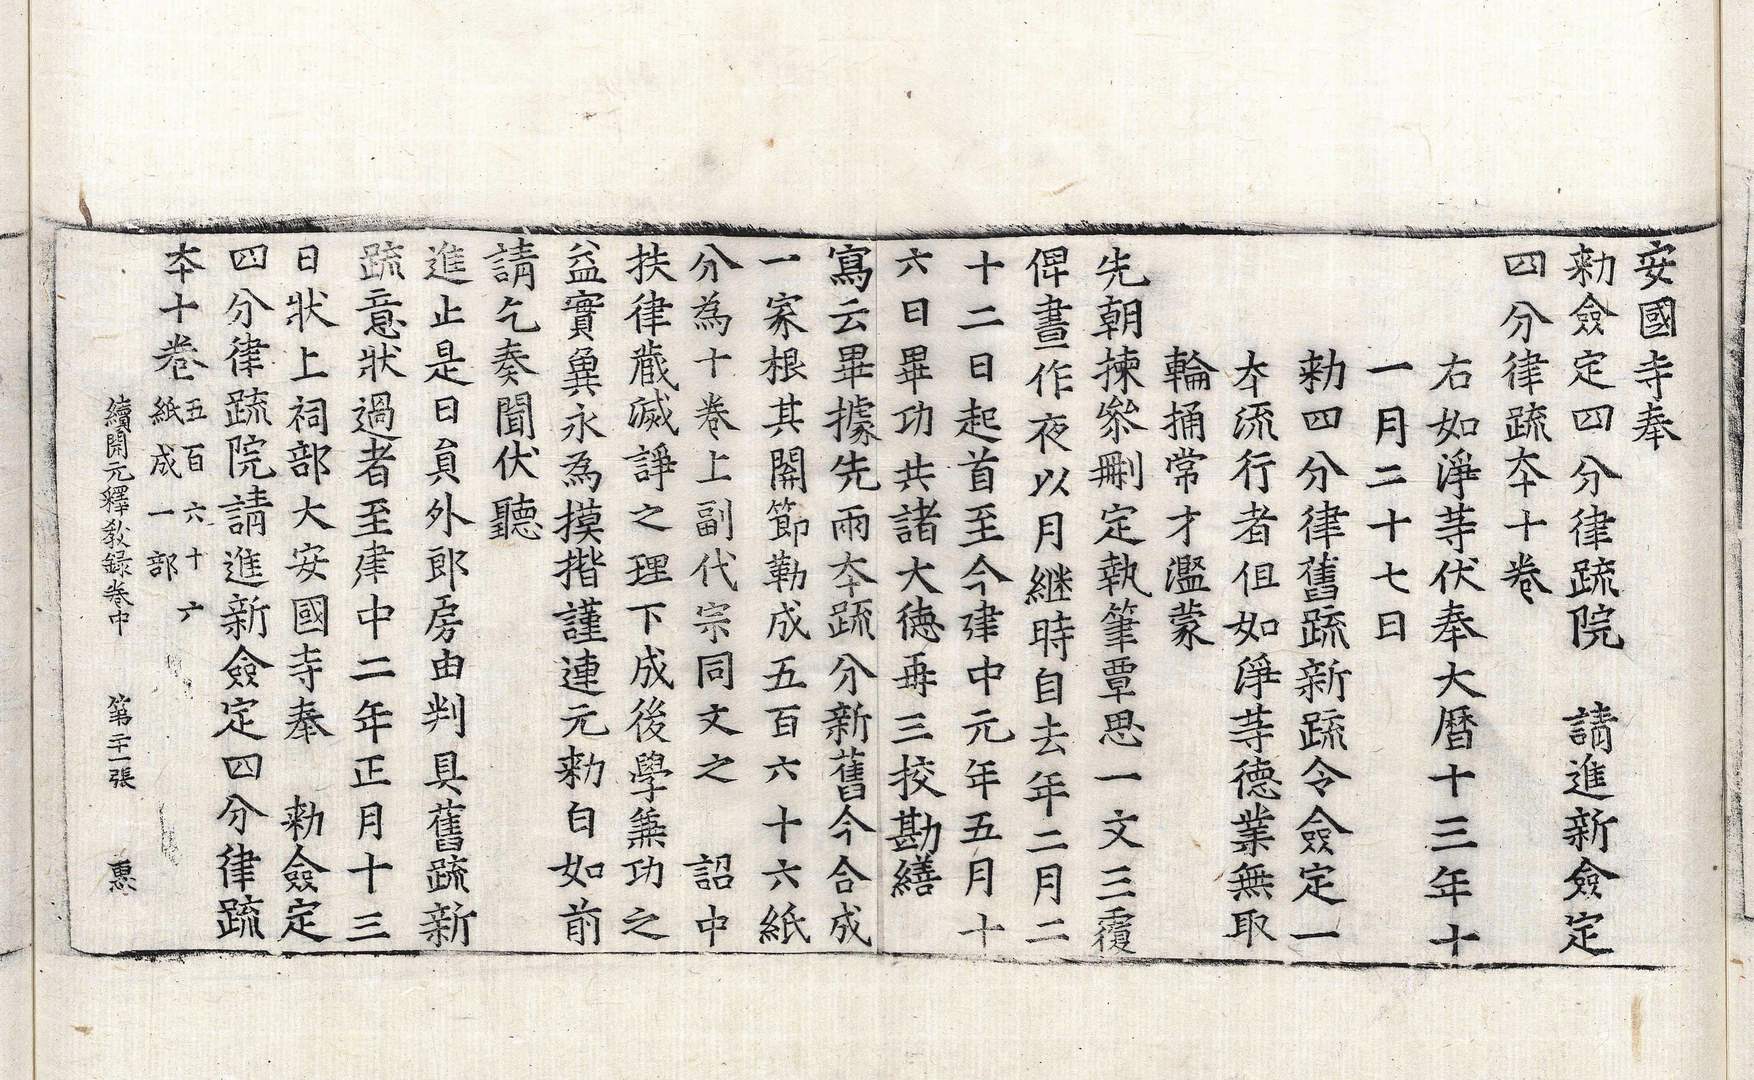 安國寺奉
勑僉定四分律䟽院　請進新僉定
四分律䟽夲十卷
右如淨䓁伏奉大曆十三年十
一月二十七日
勑四分律舊䟽新䟽令僉定一
夲流行者伹如淨䓁德業無取
輪捅常才濫蒙
先朝揀叅刪定執筆覃思一文三覆
俾晝作夜以月継時自去年二月二
十二日起首至今建中元年五月十
六日畢功共諸大德再三挍勘繕
寫云畢據先兩夲䟽分新舊今合成
一家根其関節勒成五百六十六紙
分為十卷上副代宗同文之　詔中
扶律蔵滅諍之理下成後學無功之
益實兾永為摸揩謹連元勑白如前
請乞奏聞伏聽
進止是日貟外郎房由判具舊䟽新
䟽意狀過者至建中二年正月十三
日狀上祠部大安國寺奉　勑僉定
四分律䟽院請進新僉定四分律䟽
夲十卷五百六十六
紙成一部
續開元釋教録卷中　第二十一張　惠